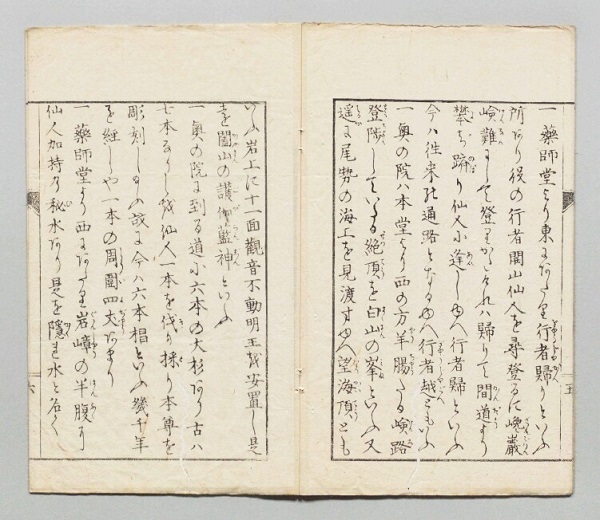 一 藥師堂より東にあたり行者歸りといふ
所あり役の行者開山仙人を尋登るに巉巖
嶮難にして登りかたけれハ歸りて間道より
攀ぢ躋り仙人に逢しゆへ行者歸といふ
今ハ徃来の通路となるゆへ行者越ともいふ
一 奥の院ハ本堂より西の方羊腸たる嶮路
登陟していたる絶頂を白山の峯といふ又
遥に尾勢の海上を見渡すゆへ望海頂とも
いふ岩上に十一面觀音不動明王を安置し是
を闔山の護伽藍神といふ
一 奥の院に到る道に六本の大杉あり古ハ
七本なりし 仙人一本を伐り採り本尊を
彫刻しるゆへ故に今ハ六本椙といふ幾千年
を經しや一本の周圍四丈あまり
一 藥師堂より西にあたり岩嶂の半腹に
仙人加持の秘水あり是を隱れ水と名く
五
六